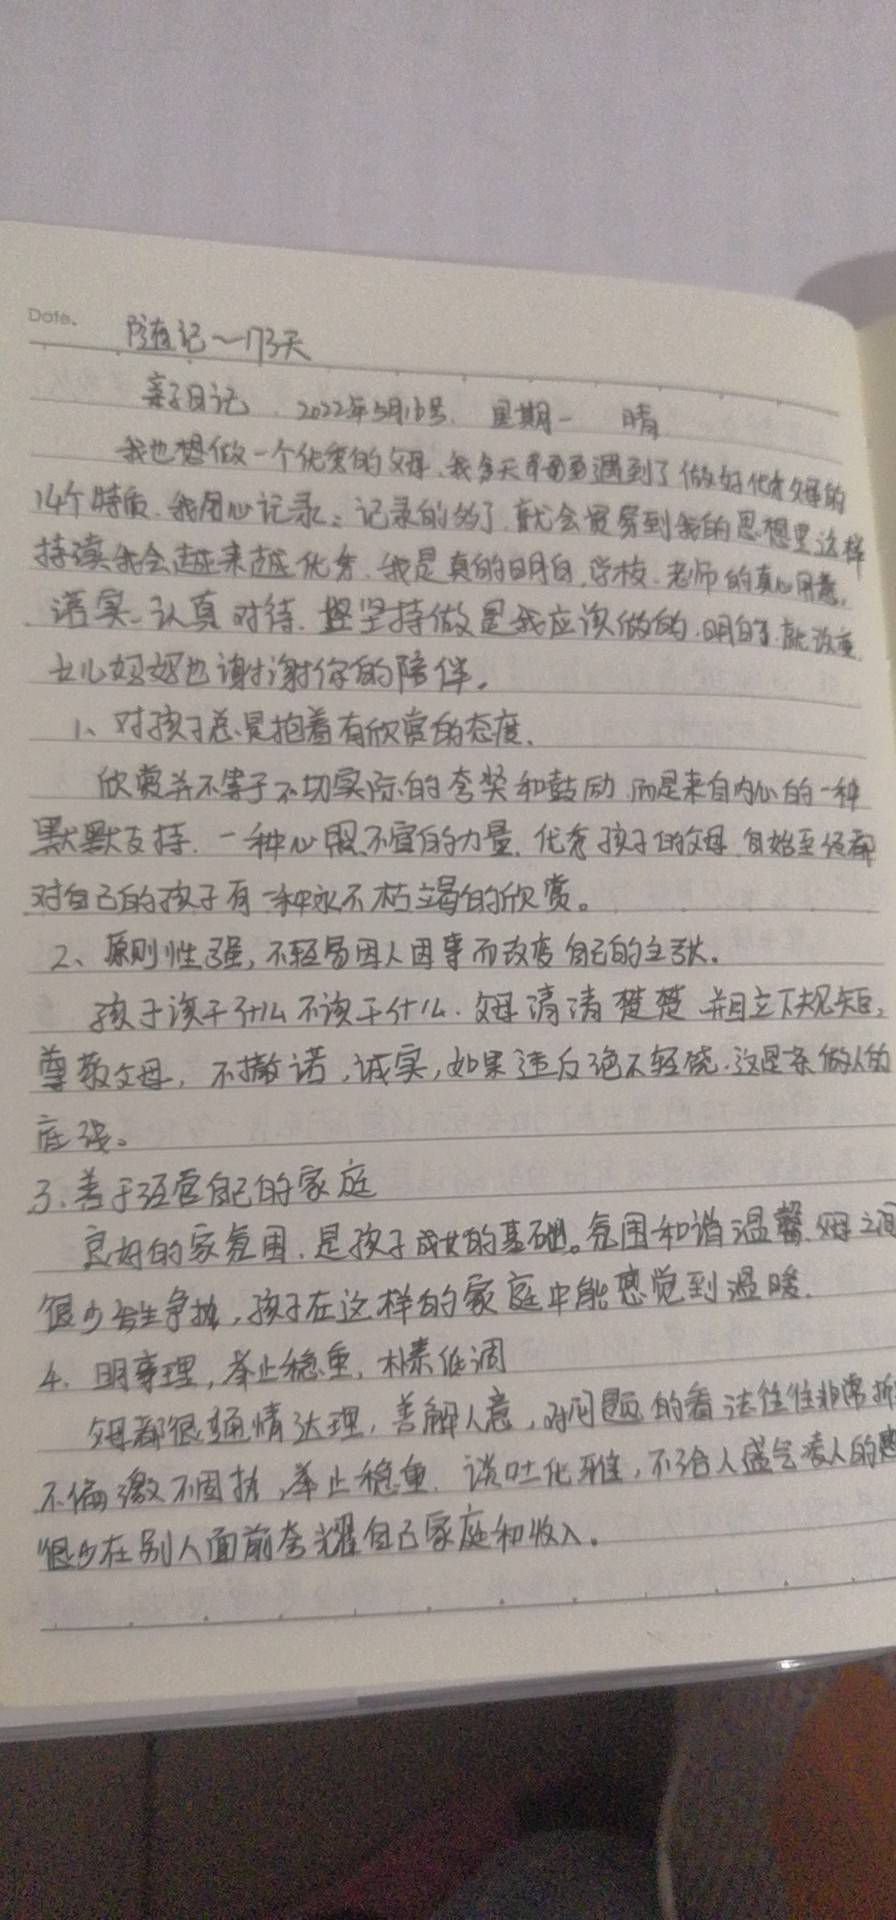 Date.
随记～173天
亲子日记 2022年5月16号. 星期一 晴
我也想做一个优秀的父母.我今天有幸遇到了做好优秀父母的
14个特质.我用心记录.记录的多了.就会贯穿到我的思想里这样
持续我会越来越优秀.我是真的明白.学校.老师的真心用意.
落实.认真对待.坚持做是我应该做的.明白了.就改变
女儿妈妈也谢谢你的陪伴.
1、对孩子总是抱着有欣赏的态度.
欣赏并不等于不切实际的夸奖和鼓励.而是来自内心的一种
默默支持.一种心照不宣的力量.优秀孩子的父母.自始至终都
对自己的孩子有一种永不枯竭的欣赏。
2、原则性强,不轻易因人因事而改变自己的主张.
孩子该干什么不该干什么.父母清清楚楚.并且立下规矩,
尊敬父母,不撒谎,诚实,如果违反绝不轻饶.这是亲做人的
底线。
3.善于经营自己的家庭
良好的家氛围.是孩子成长的基础。氛围和谐温馨.父母之间
很少发生争执,孩子在这样的家庭中能感觉到温暖.
4.明事理,举止稳重,朴素低调
父母都很通情达理,善解人意,对问题的看法往往非常
不偏激不固执,举止稳重.谈吐优雅,不给人盛气凌人的感
很少在别人面前夸耀自己家庭和收入。